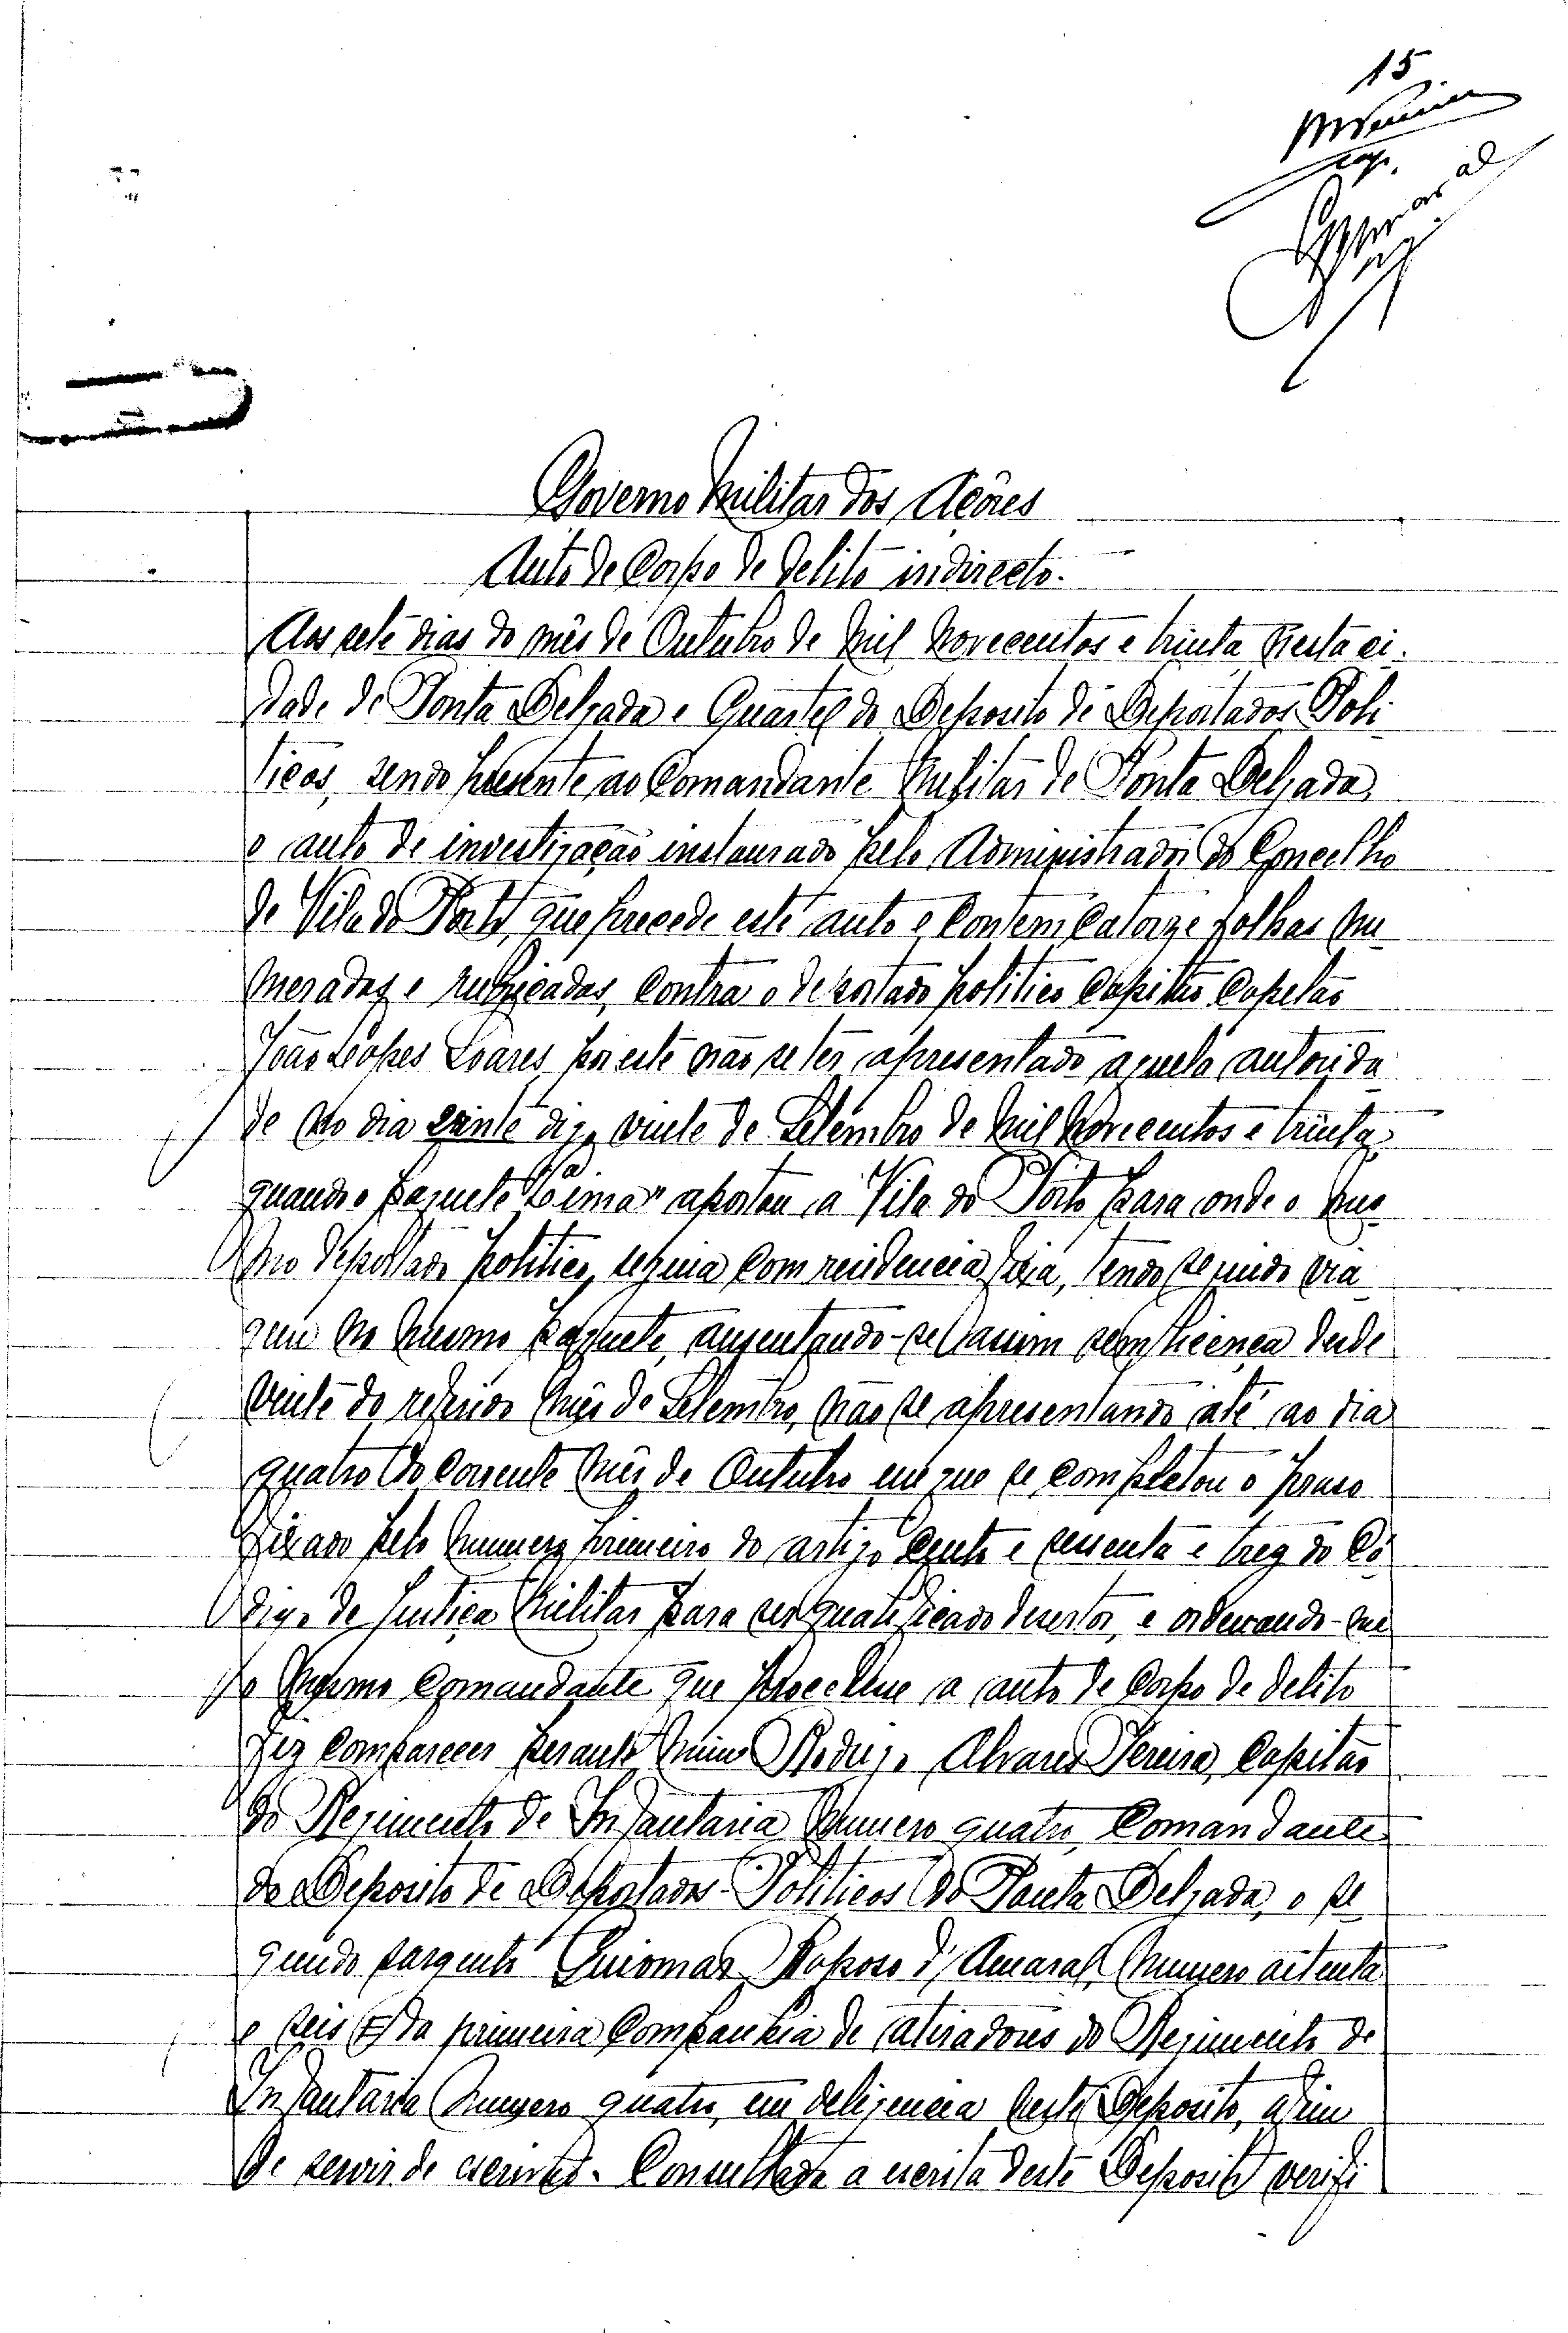 15
Governo Militar dos Açôres
Auto de Corpo de delito indirecto.
Aos sete dias do mês de Outubro de mil novecentos e trinta nesta ci-
dade de Ponta Delgada e Quartel do Deposito de Deportados Poli-
ticos, sendo presente ao Comandante Militar de Ponta Delgada
o auto de investigação instaurado pelo Administrador do Concelho
de Vila do Porto, que precede este auto e contem catorze folhas nu
meradas e rubricadas, contra o deportado politico Capitão Capelão
João Lopes Soares, por este não se ter apresentado aquela autorida
de no dia vinte digo vinte de Setembro de mil novecentos e trinta
quando o paquete Lima aportou a Vila do Porto para onde o mes
mo deportado politico seguia com residencia fixa, tendo seguido via
gem no mesmo paquete, ausentando-se assim sem licença desde
vinte do referido mês de Setembro, não se apresentando até ao dia
quatro do corrente mês de Outubro em que se completou o praso
fixado pelo numero primeiro do artigo cento e sessenta e trez do Co
digo de Justiça Militar para ser qualificado desertor, e ordenando-me
o mesmo Comandante que procedesse a auto de corpo de delito
fiz comparecer perante mim Rodrigo Alvares Pereira, Capitão
do Regimento de Infantaria numero quatro, Comandante
do Deposito de Deportados Politicos de Ponta Delgada, o se
gundo sargento Guiomar Raposo d'Amaral, numero oitenta
e seis da primeira Companhia de atiradores do Regimento de
Infantaria numero quatro, em deligencia neste Deposito, afim
de servir de escrivão. Consultada a escrita deste Deposito verifi